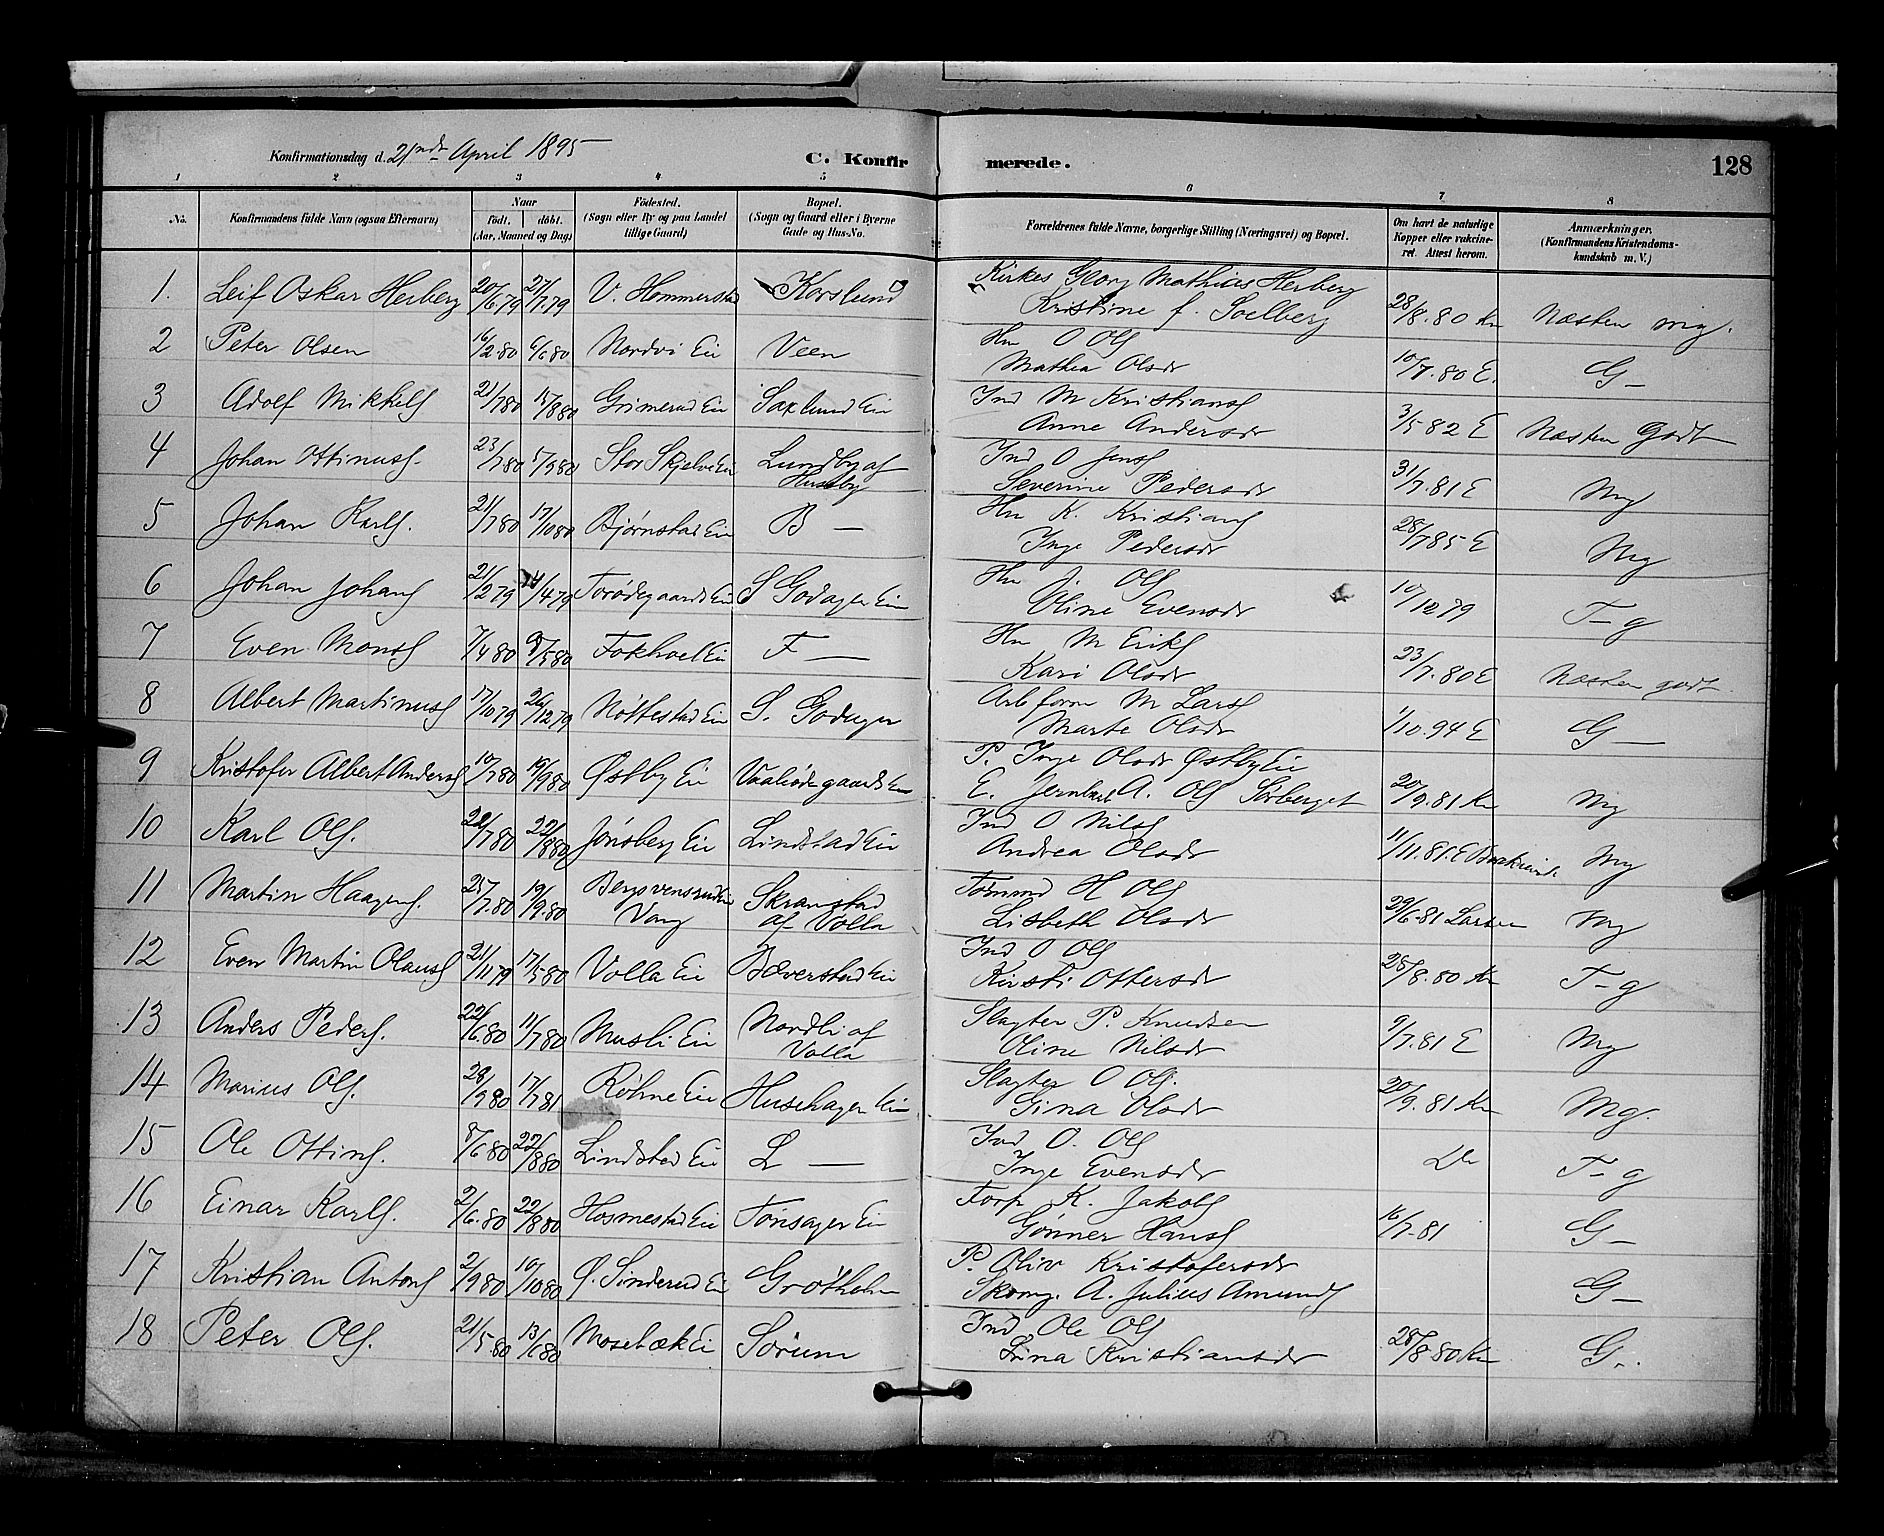 Konfirmationsdag d. 21nde April 1895
C. Konfirmerede.
128
1 2 3 4 5 6 7 8
No.
Konfirmandens fulde Navn (ogsaa Efternavn)
Naar
födt. döbt.
(Aar, Maaned og Dag)
Födested.
(Sogn eller By og paa Landet
tillige Gaard)
Bopæl.
(Sogn og Gaard eller i Byerne
Gade og Hus-No.
Forældrenes fulde Navne, borgerlige Stilling (Næringsvei) og Bopæl.
Om havt de naturlige
Kopper eller vakcine-
ret. Attest herom.
Anmærkninger.
(Konfirmandens Kristendoms-
kundskab m. V.)
1. Leif Oskar Herberg 20/6 79 27/7 79 V. Hommerstad Korslund Kirkes Georg Mathias Herberg
Kristine f. Soelberg 28/8.80 Kn Næsten mg.
2 Peter Olsen 16/2 80 6/6 80 Nordvi Eie Veen Hm O Ols
Mathea Olsdr 10/7.80 E. G-
3 Adolf Mikkels 21/7 80 15/8 80 Grimerud Eie Saxlund Eie Ind M Kristians
Anne Andersdr 3/5 82 E Næsten Godt
4 Johan Ottinuss. 23/7 80 5/9 80 Stor Skjelve Eie Lundby af
Husby Ind O Jens
Severine Pedersdr 31/7.81 E Mg
5 Johan Karls. 21/7 80 17/10 80 Bjørnstad Eie B — Hm K. Kristians
Inge Pedersdr 28/7 85 E Mg
6 Johan Johans 21/2 79 14/4 79 Torødegaards Eie S Godager Eie Hm J. Ols
Oline Evensdr 10/12 79 T-g
7 Even Mons 7/4 80 9/5 80 Fokhol Eie F — Hm M Eriks
Kari Olsdr 23/7.80 E Næsten godt
8 Albert Martinus 17/10 79 26/12 79 Nøttestad Eie S. Godager Arb form M Lars
Marte Olsdr 1/10.94 E G —
9 Kristofer Albert Anders 10/7 80 19/9 80 Østby Eie P. Inge Olsdr Østby Eie
E. A. Ols Sørberget 20/9.81 Kn Mg
10 Karl Ols. 22/7 80 22/8 80 Jønsberg Eie Lindstad Eie Ind O Nils
Andrea Olsdr 11/11.81. E Mg
11 Martin Haagens. 25/7.80 19/9.80
Vang Skramstad
af Volla H Ols
Lisbeth Olsdr 29/6.81 Larsen Mg
12 Even Martin Olaus 21/11 79 17/5 80 Volla Eie Bæverstad Eie Ind O Ols
Kirsti Ottersdr 28/8.80 Kn T-g
13 Anders Peders. 22/6.80 11/7 80 Musli Eie Nordli af
Volla Slagter P. Knudsen
Oline Nilsdr 9/7.81 E Mg
14 Marius Ols. 28/9 80 17/7 81 Røhne Eie Husehager Eie Slagter O Ols.
Gina Olsdr 20/9.81 Kn Mg.
15 Ole Ottins. 8/6 80 22/8 80 Lindstad Eie L — Ind O. Ols
Inge Evensdr Do T-g
16 Einar Karls. 2/6.80 22/8 80 Hosmestad Eie Tønsager Eie Forp K. Jakobs
Gønner Hans 16/7.81 G-
17 Kristian Antons 2/9 80 10/10 80 Ø. Sinderud Eie Grøtholm P. Oliv Kristofersdr
Skomg. A. Julius Amunds G-
18 Peter Ols. 21/5 80 13/6 80 Mosebæk Eie Sørum Ind Ole Ols
Lina Kristiansdr 28/8 80 Kn G-.